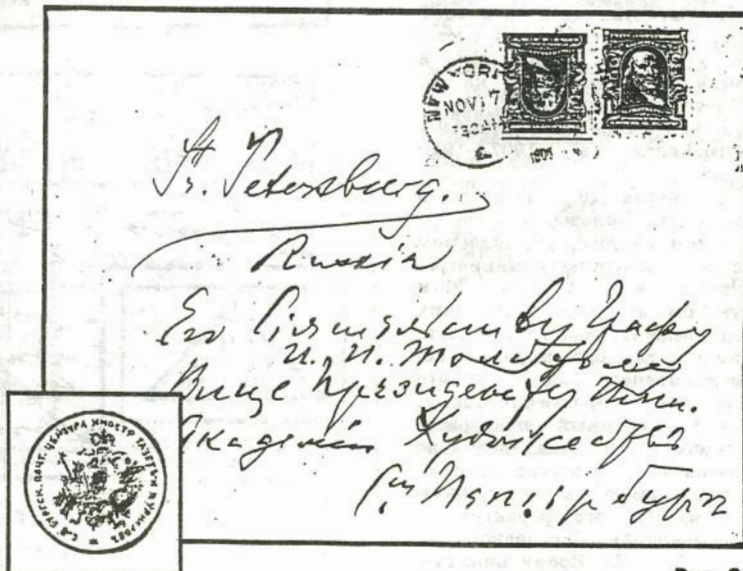 NEW YORK
NOV 17
730AM
St. Petersburg.
Russia
Его Сіятельству Графу
И. И. Толстому
Вице Президенту Имп.
Академіи Художествъ
С. Петербургъ
ПОЧТ. ЦЕНЗУРА ИНОСТР. ГАЗЕТЪ И ЖУРНАЛОВЪ